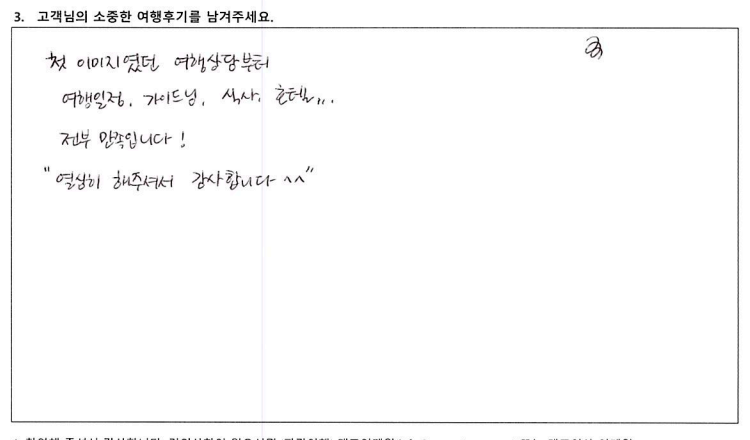 3. 고객님의 소중한 여행후기를 남겨주세요.
첫 이미지였던 여행상담부터
여행일정, 가이드님, 식사, 호텔,,,.
전부 만족입니다!
"열심히 해주셔서 감사합니다 ^^"